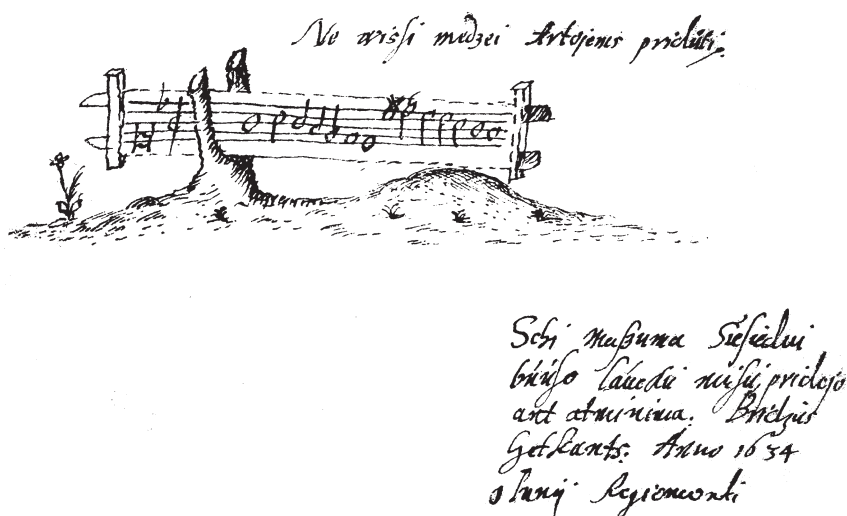 Ne wissi medzei Artojems priduti.
Schi maßuma
buuso laucku musu pridejo
ant atminima. Bridzius
Getkants. Anno 1634
Iunij Regiomonti